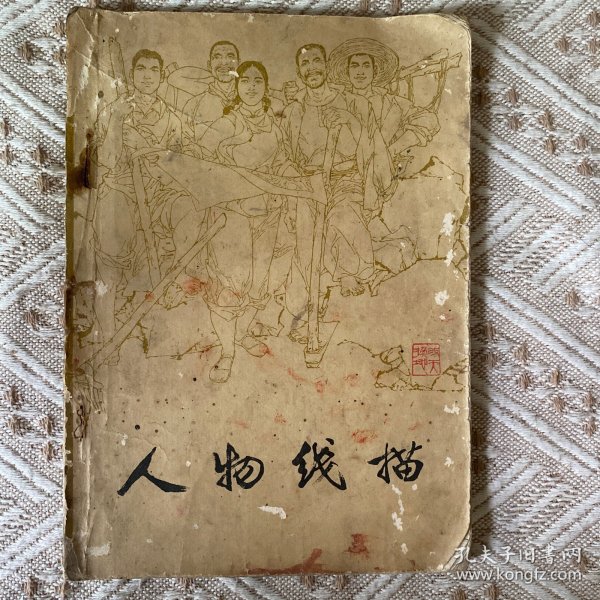 改天
换地
人物线描
孔夫子旧书网
www.kongfz.com